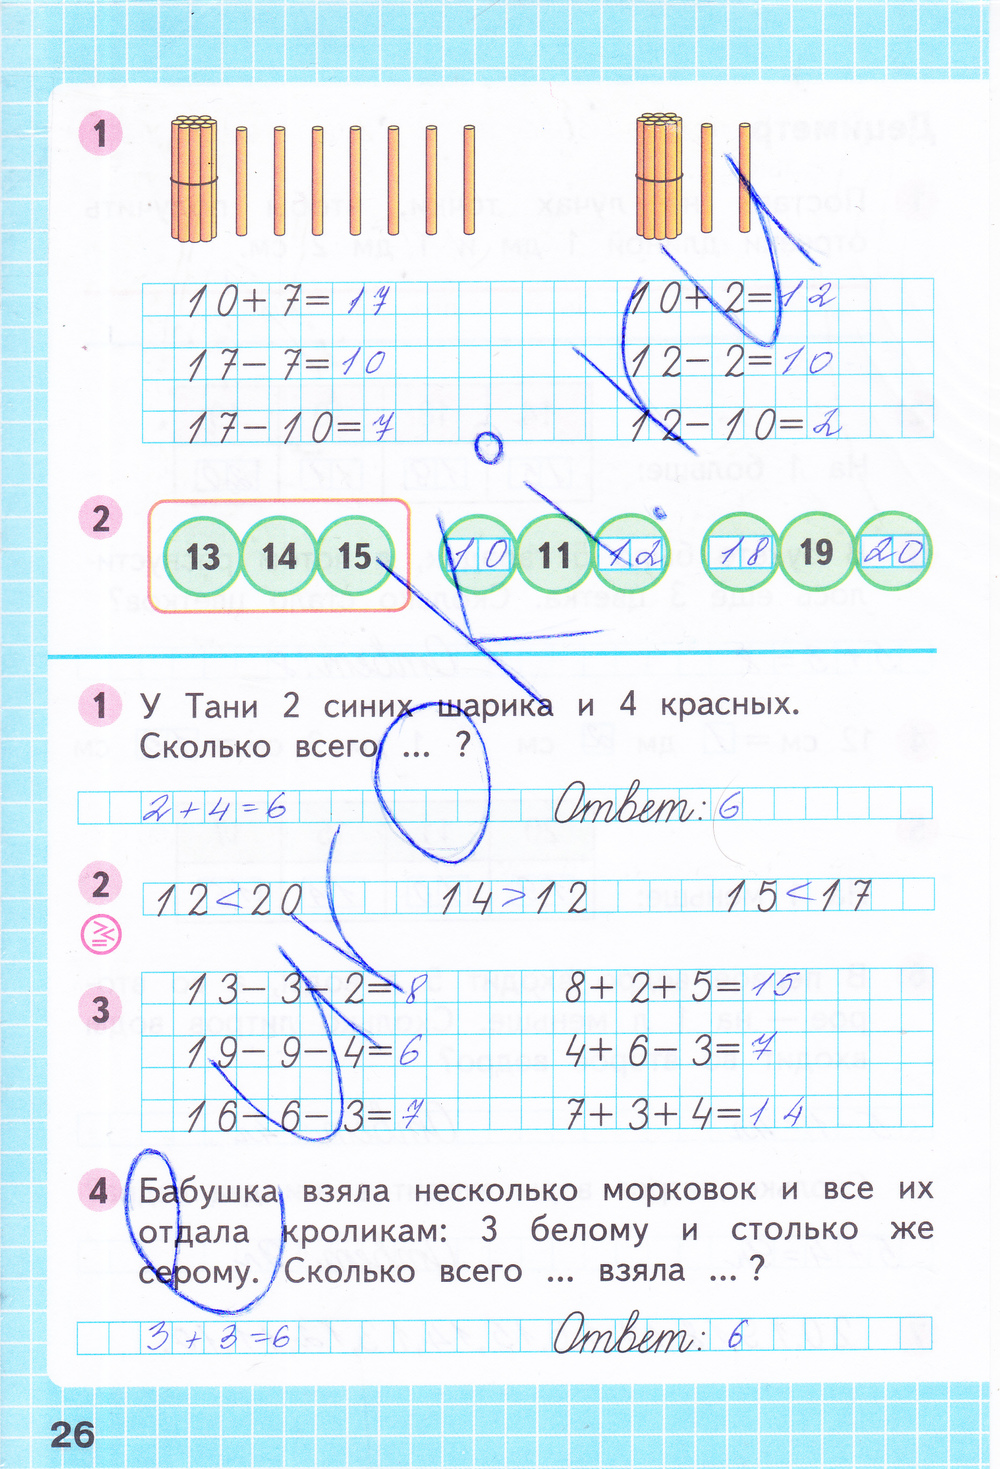 1
10+7=17 10+2=12
17-7=10 12-2=10
17-10=7 12-10=2
2 13 14 15 10 11 12 18 19 20
1 У Тани 2 синих шарика и 4 красных.
Сколько всего ... ?
2+4=6 Ответ: 6
2 12<20 14>12 15<17
3 13-3-2=8 8+2+5=15
19-9-4=6 4+6-3=7
16-6-3=7 7+3+4=14
4 Бабушка взяла несколько морковок и все их
отдала кроликам: 3 белому и столько же
серому. Сколько всего ... взяла ... ?
3+3=6 Ответ: 6
26